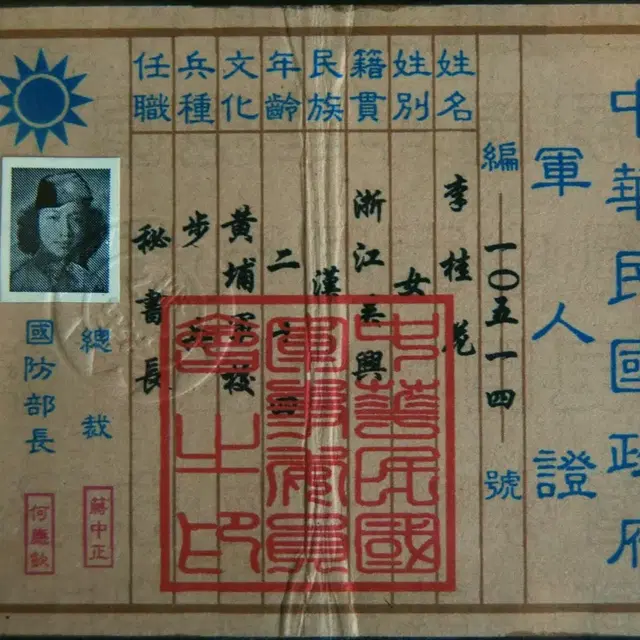 中華民國政府
軍人證
編一一〇五一一四號
姓名 李桂
姓別 女
籍貫 浙江 興
民族 漢
年齡 二十
文化 黃埔軍校
兵種 步兵
任職 秘書長
總裁
蔣中正
國防部長
何應欽
中華民國
軍事委員
會之印